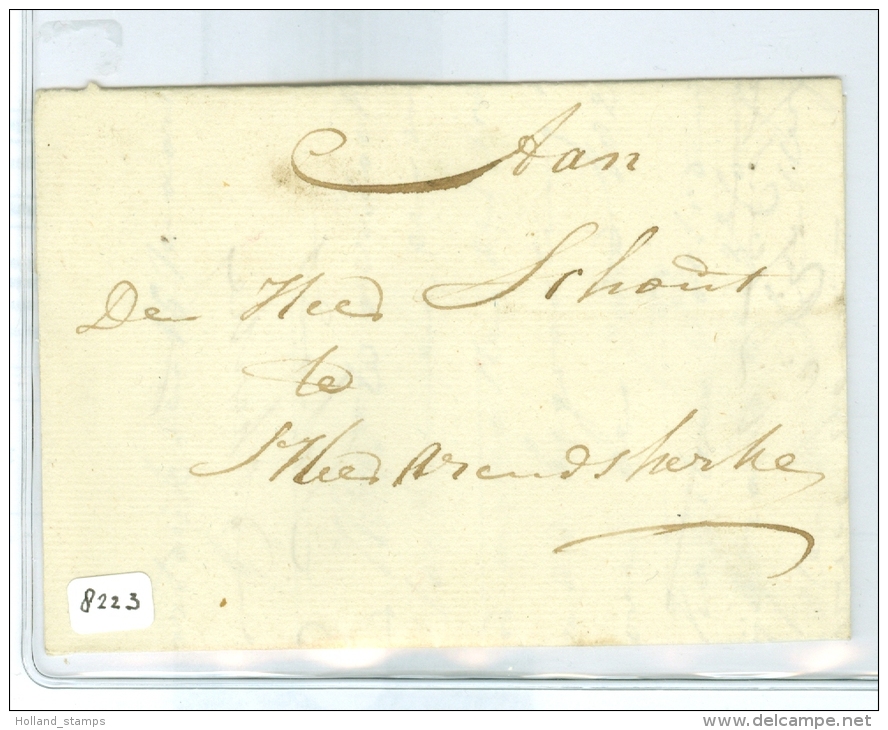 Aan
De Heer Schout
te
sHeerArendskerke
8223
Holland_stamps
www.delcampe.net